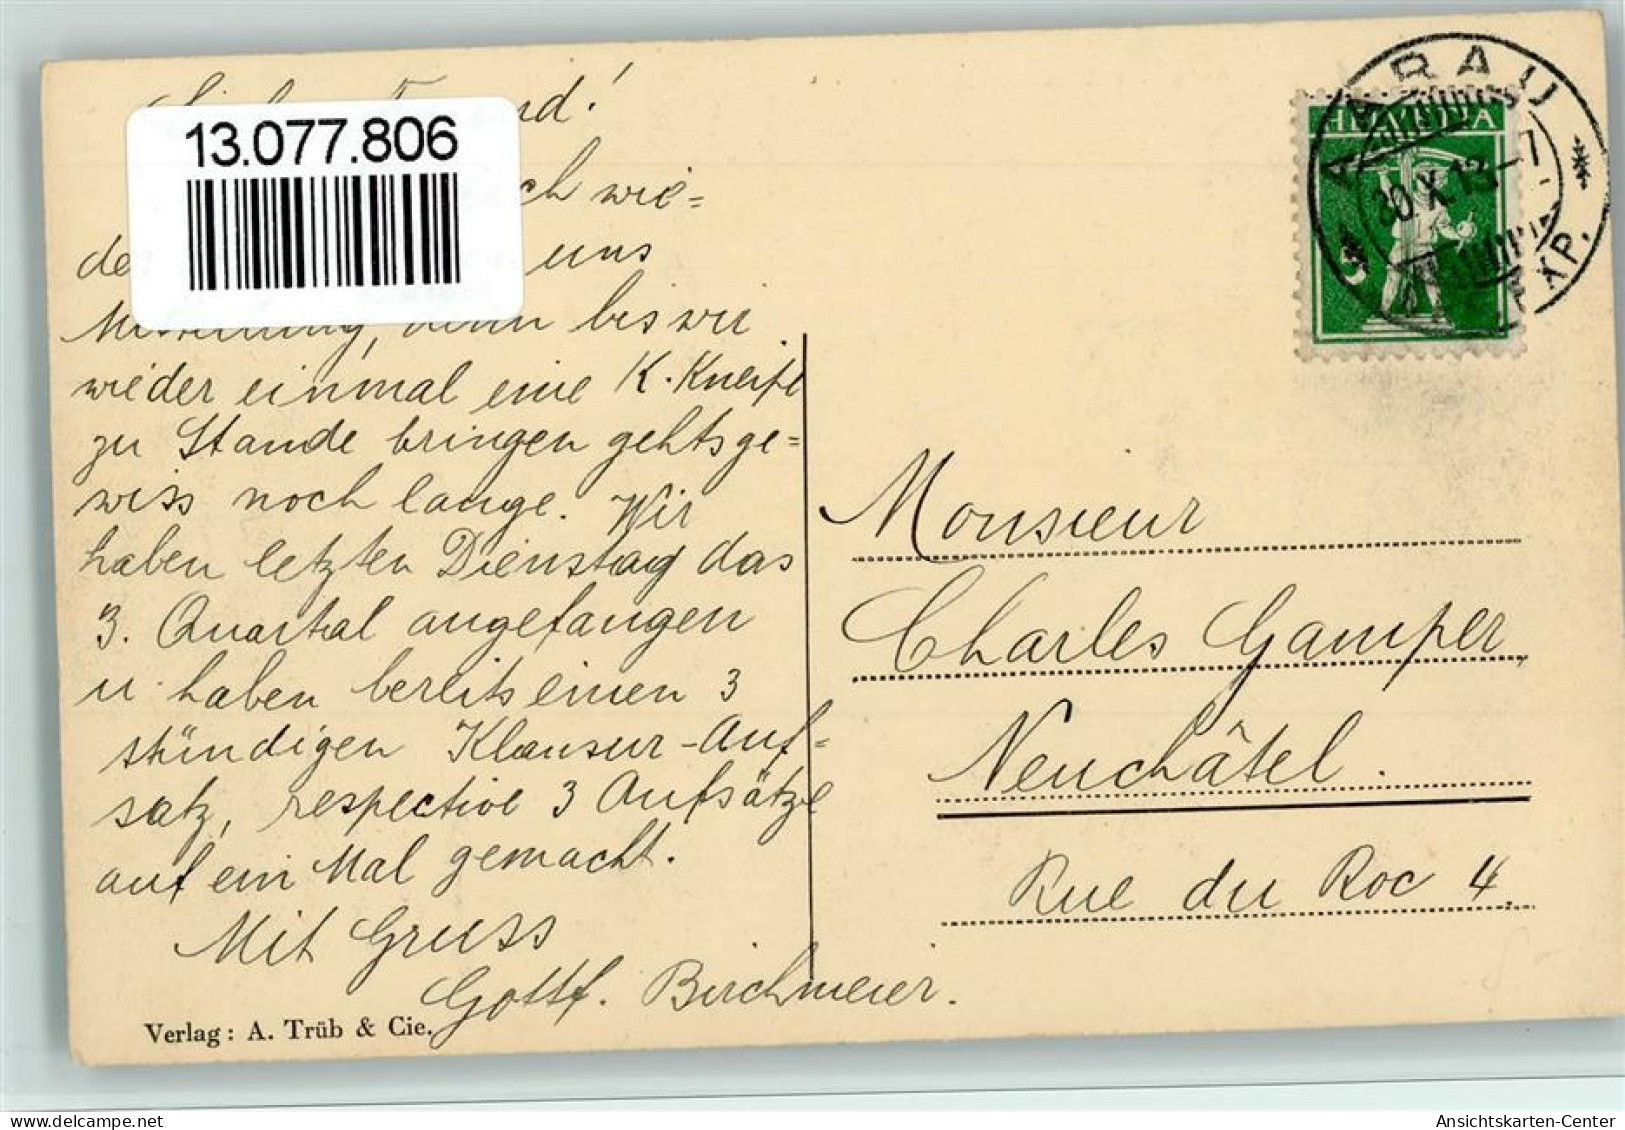 Freund!
13.077.806
wie=
uns
Mitteilung, denn bis wir
wieder einmal eine K. Kneipe
zu Stande bringen gehts ge=
wiss noch lange. Wir
haben letzten Dienstag das
3. Quartal angefangen
u. haben bereits einen 3
stündigen Klausur-Auf=
satz, respective 3 Aufsätze
auf ein Mal gemacht.
Mit Gruss
Gottf. Birchmeier.
Verlag: A. Trüb & Cie.
AARAU
HELVETIA
30.X.13.-7
5
EXP.
Monsieur
Charles Gamper
Neuchâtel.
Rue du Roc 4.
Ansichtskarten-Center